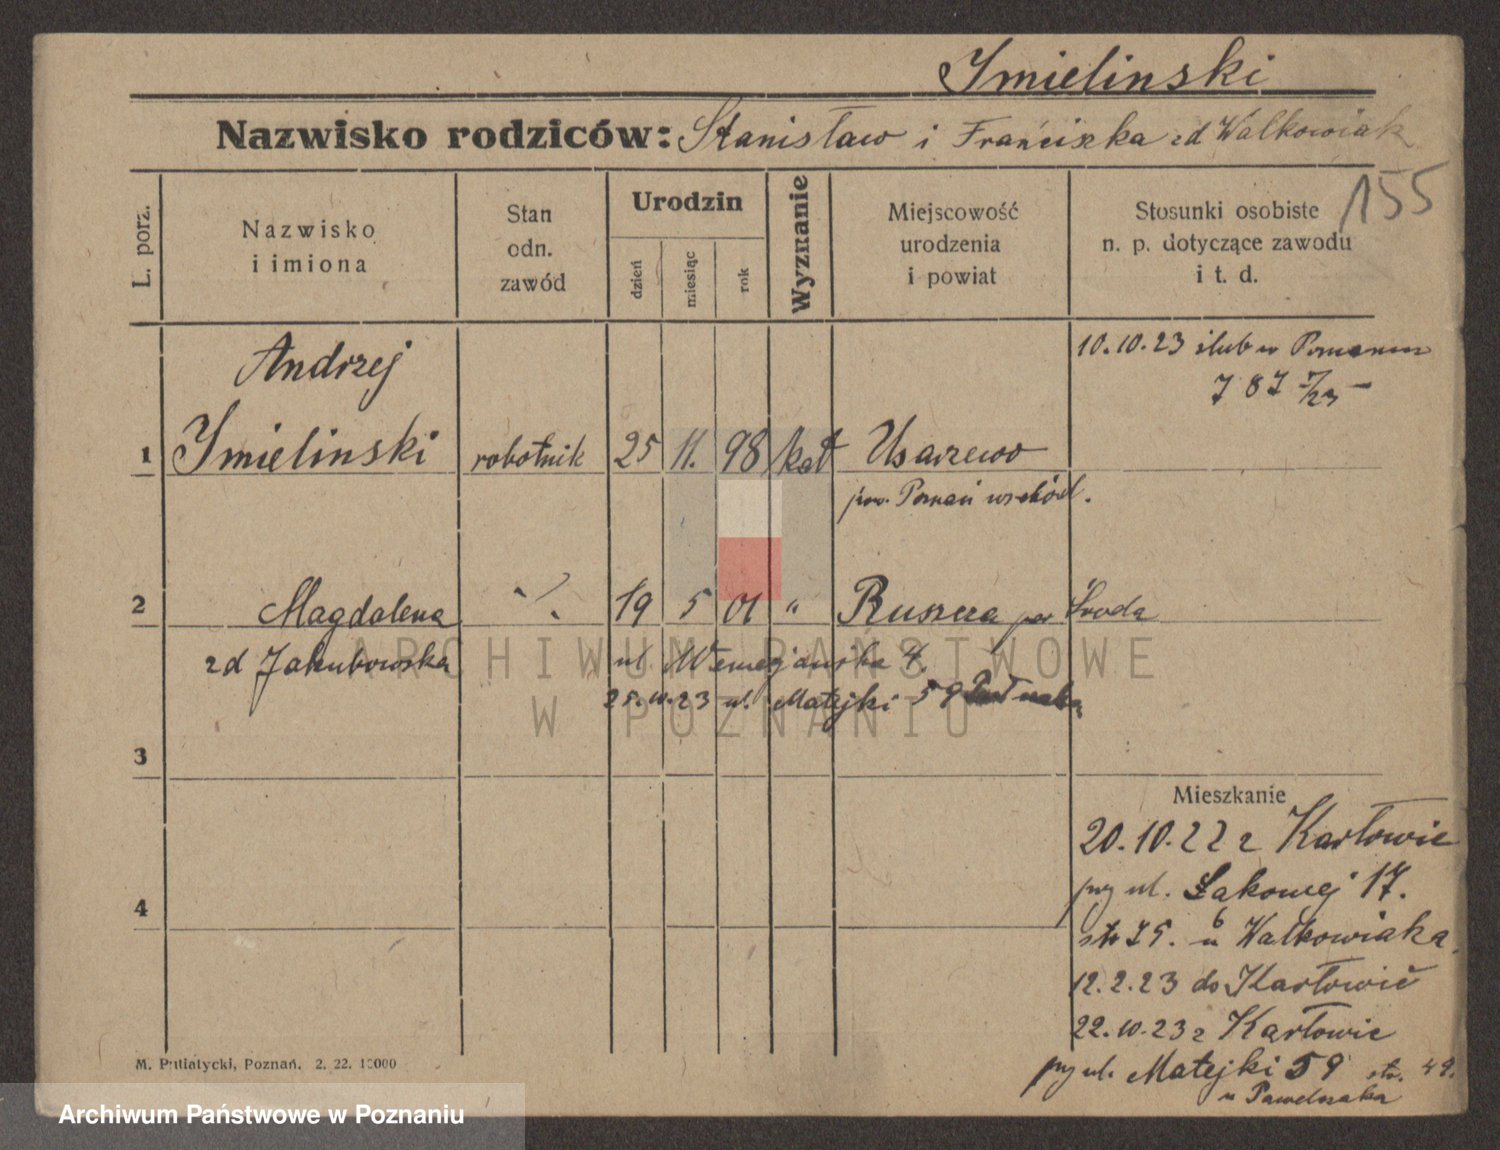 Imielinski
Nazwisko rodziców: Stanisław i Franciszka zd Walkowiak
155
L. porz.
Nazwisko
i imiona
Stan
odn.
zawód
Urodzin
dzień
miesiąc
rok
Wyznanie
Miejscowość
urodzenia
i powiat
Stosunki osobiste
n. p. dotyczące zawodu
i t. d.
10.10.23 ślub w Poznaniu
787
Andrzej
1 Imielinski robotnik 25 11. 98 kat Usarzewo
pow. Poznań wschód.
2 Magdalena ./. 19 5 01 " Ruszcza pow Środa
zd Jakubowska ul 4.
25.10.23 ul. Matejki 59
3
Mieszkanie
20.10.22 z Karłowic
przy ul. Łąkowej 17.
4
str 75. u Walkowiaka
6
12.2.23 do Karłowic
22.10.23 z Karłowic
przy ul. Matejki 59 str. 49.
u Pawelczaka
M. Putiatycki, Poznań. 2. 22. 10000
ARCHIWUM PAŃSTWOWE
W POZNANIU
Archiwum Państwowe w Poznaniu